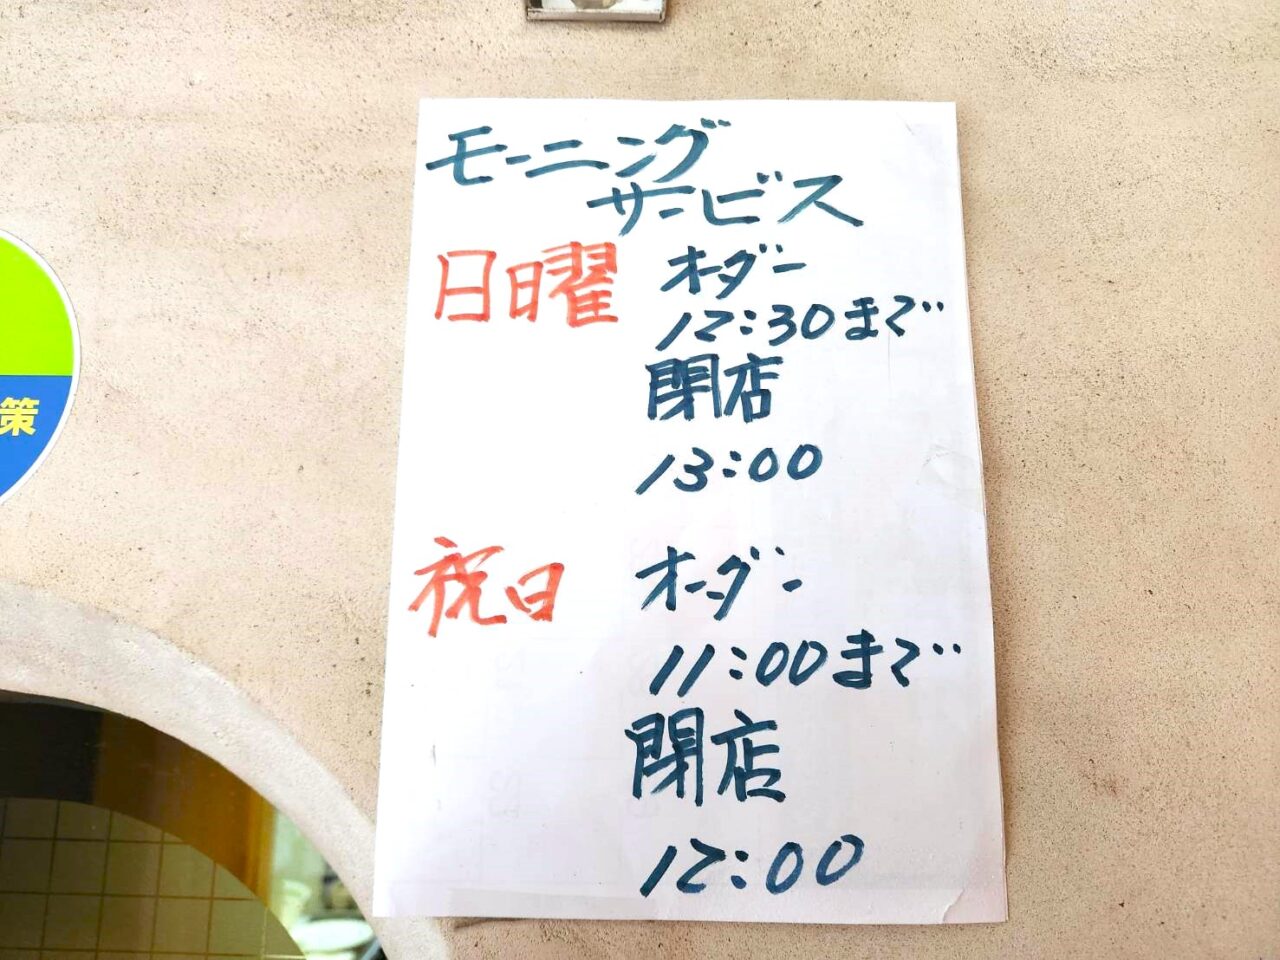 モーニング
サービス
日曜 オーダー
12:30まで
閉店
13:00
祝日 オーダー
11:00まで
閉店
12:00
策